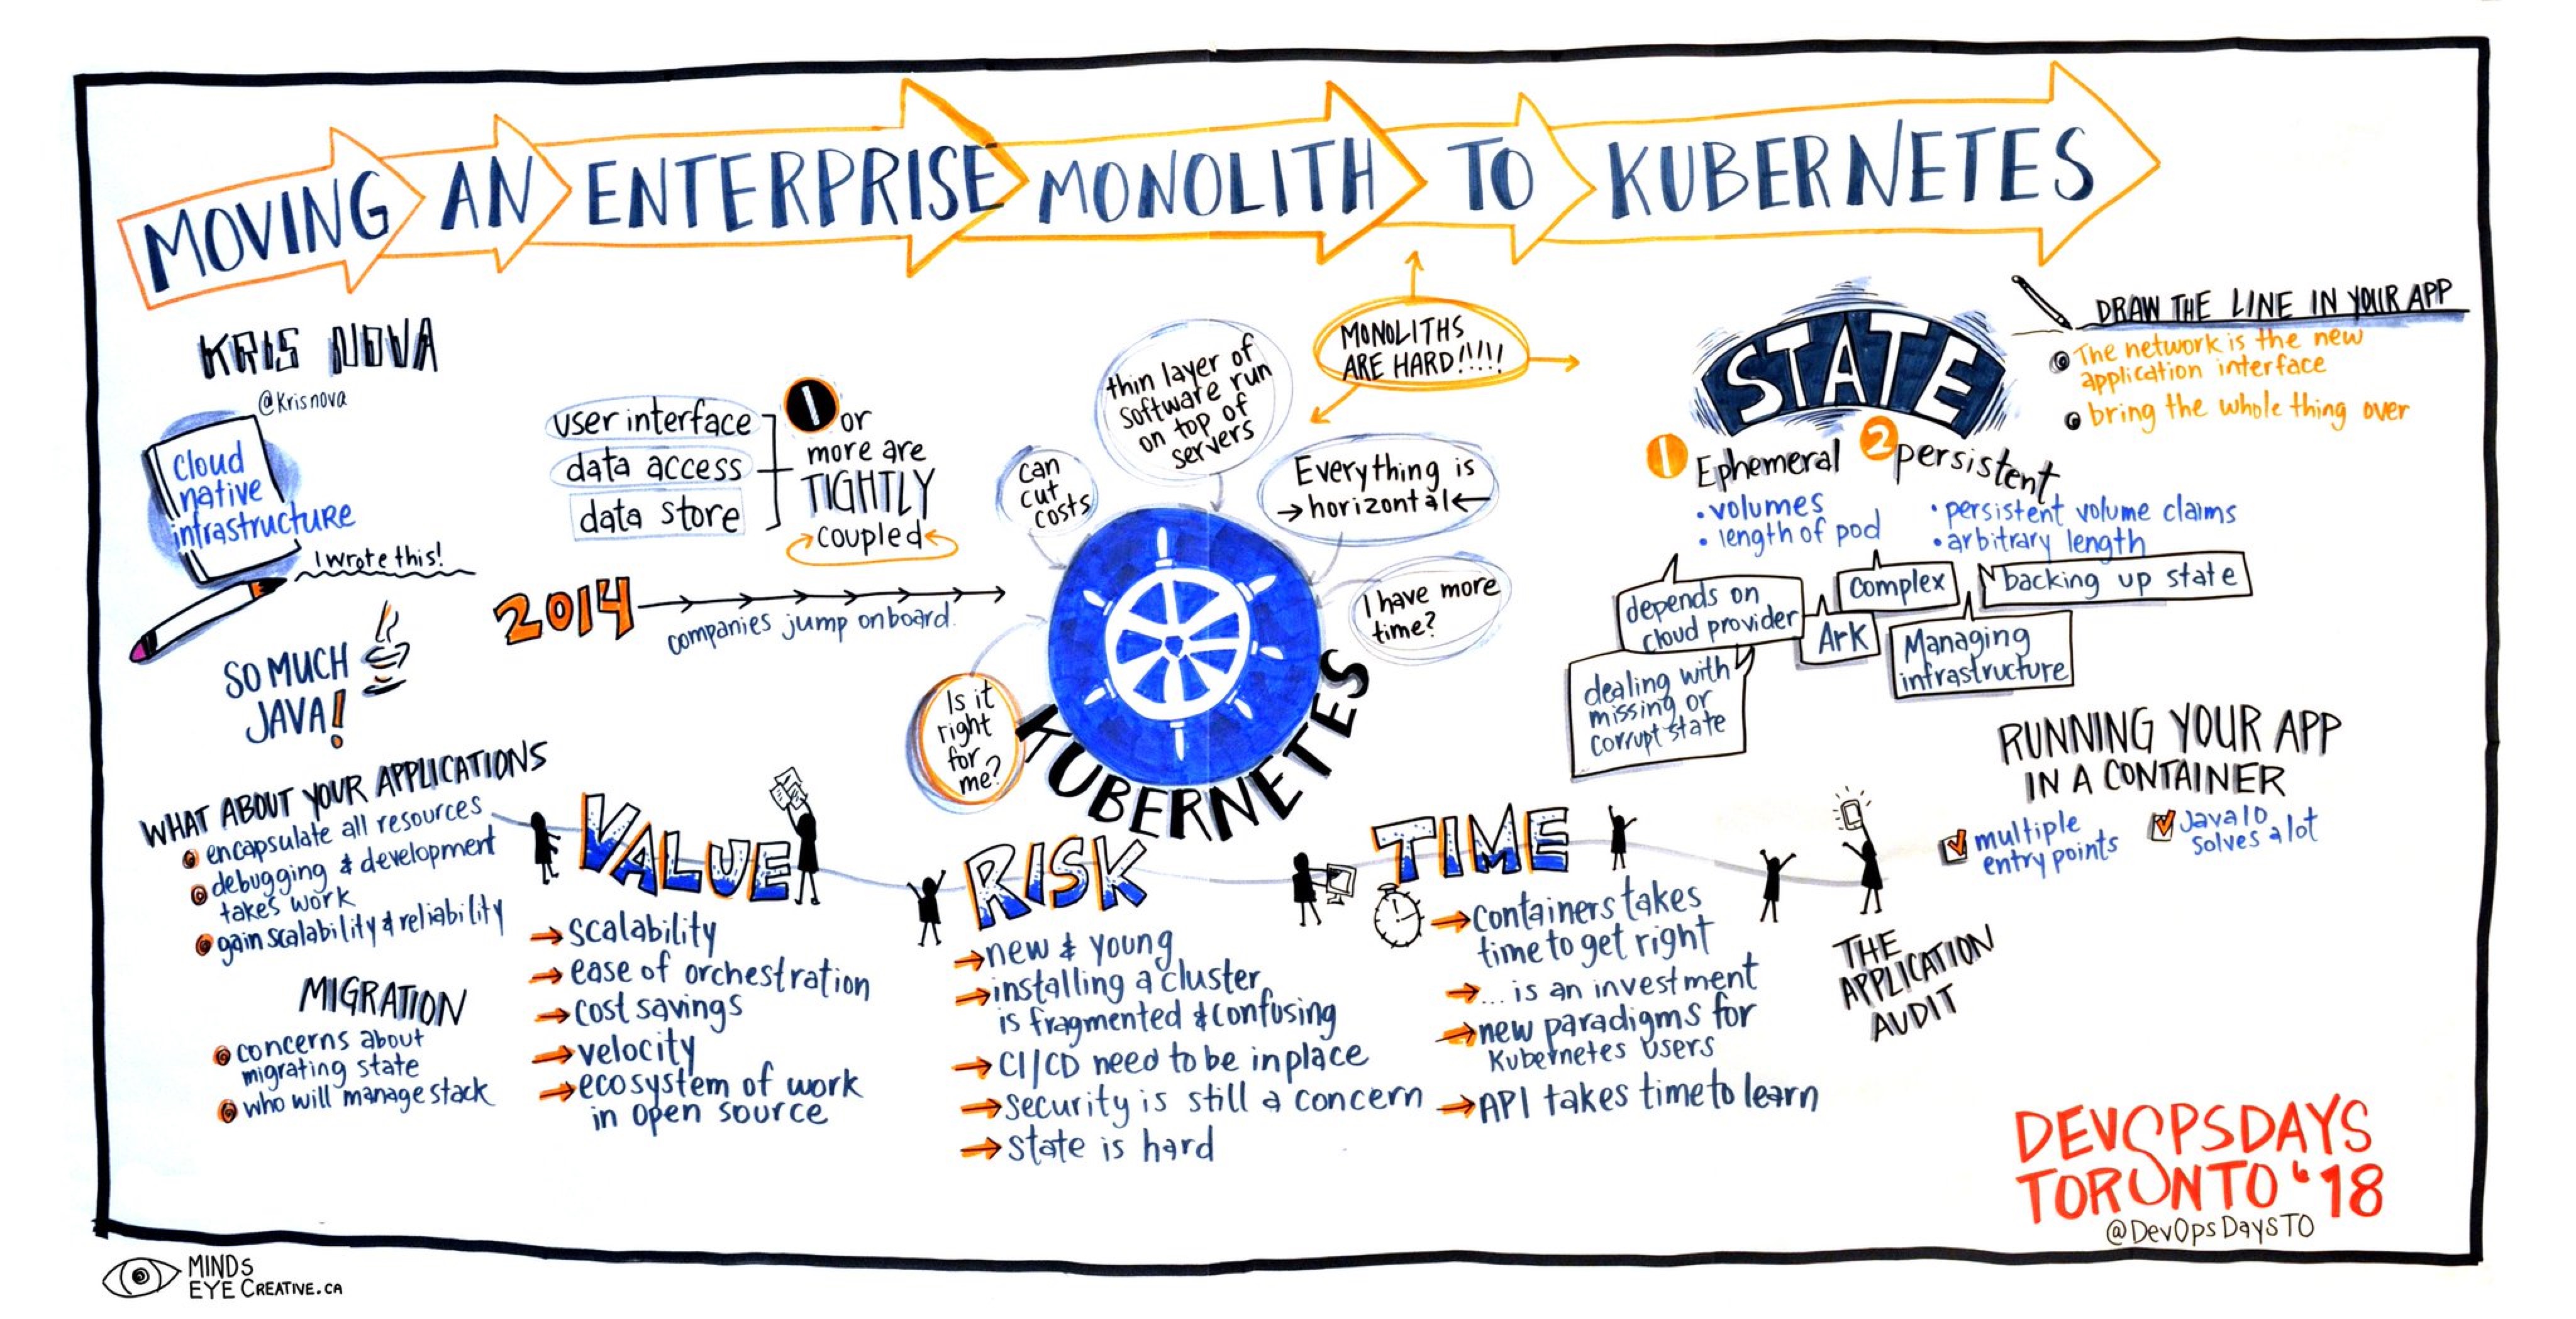 MOVING AN ENTERPRISE MONOLITH TO KUBERNETES
KRIS NOVA
@Krisnova
cloud
native
infrastructure
I wrote this!
SO MUCH
JAVA!
user interface
data access
data store
1 or
more are
TIGHTLY
coupled
2014
companies jump onboard.
can
cut
costs
thin layer of
software run
on top of
servers
MONOLITHS
ARE HARD!!!!!
Everything is
horizontal
I have more
time?
Is it
right
for
me?
KUBERNETES
STATE
1 Ephemeral
• volumes
• length of pod
2 persistent
• persistent volume claims
• arbitrary length
depends on
cloud provider
complex
backing up state
Ark
Managing
infrastructure
dealing with
missing or
corrupt state
DRAW THE LINE IN YOUR APP
The network is the new
application interface
bring the whole thing over
WHAT ABOUT YOUR APPLICATIONS
encapsulate all resources
debugging & development
takes work
gain scalability & reliability
MIGRATION
concerns about
migrating state
who will manage stack
VALUE
→ scalability
→ ease of orchestration
→ cost savings
→ velocity
→ ecosystem of work
in open source
RISK
→ new & young
→ installing a cluster
is fragmented & confusing
→ CI/CD need to be in place
→ security is still a concern
→ state is hard
TIME
→ containers takes
time to get right
→ ... is an investment
→ new paradigms for
Kubernetes users
→ API takes time to learn
THE
APPLICATION
AUDIT
RUNNING YOUR APP
IN A CONTAINER
multiple
entry points
Java 10
solves a lot
DEVOPSDAYS
TORONTO '18
@DevOpsDaysTO
MINDS
EYE CREATIVE.CA